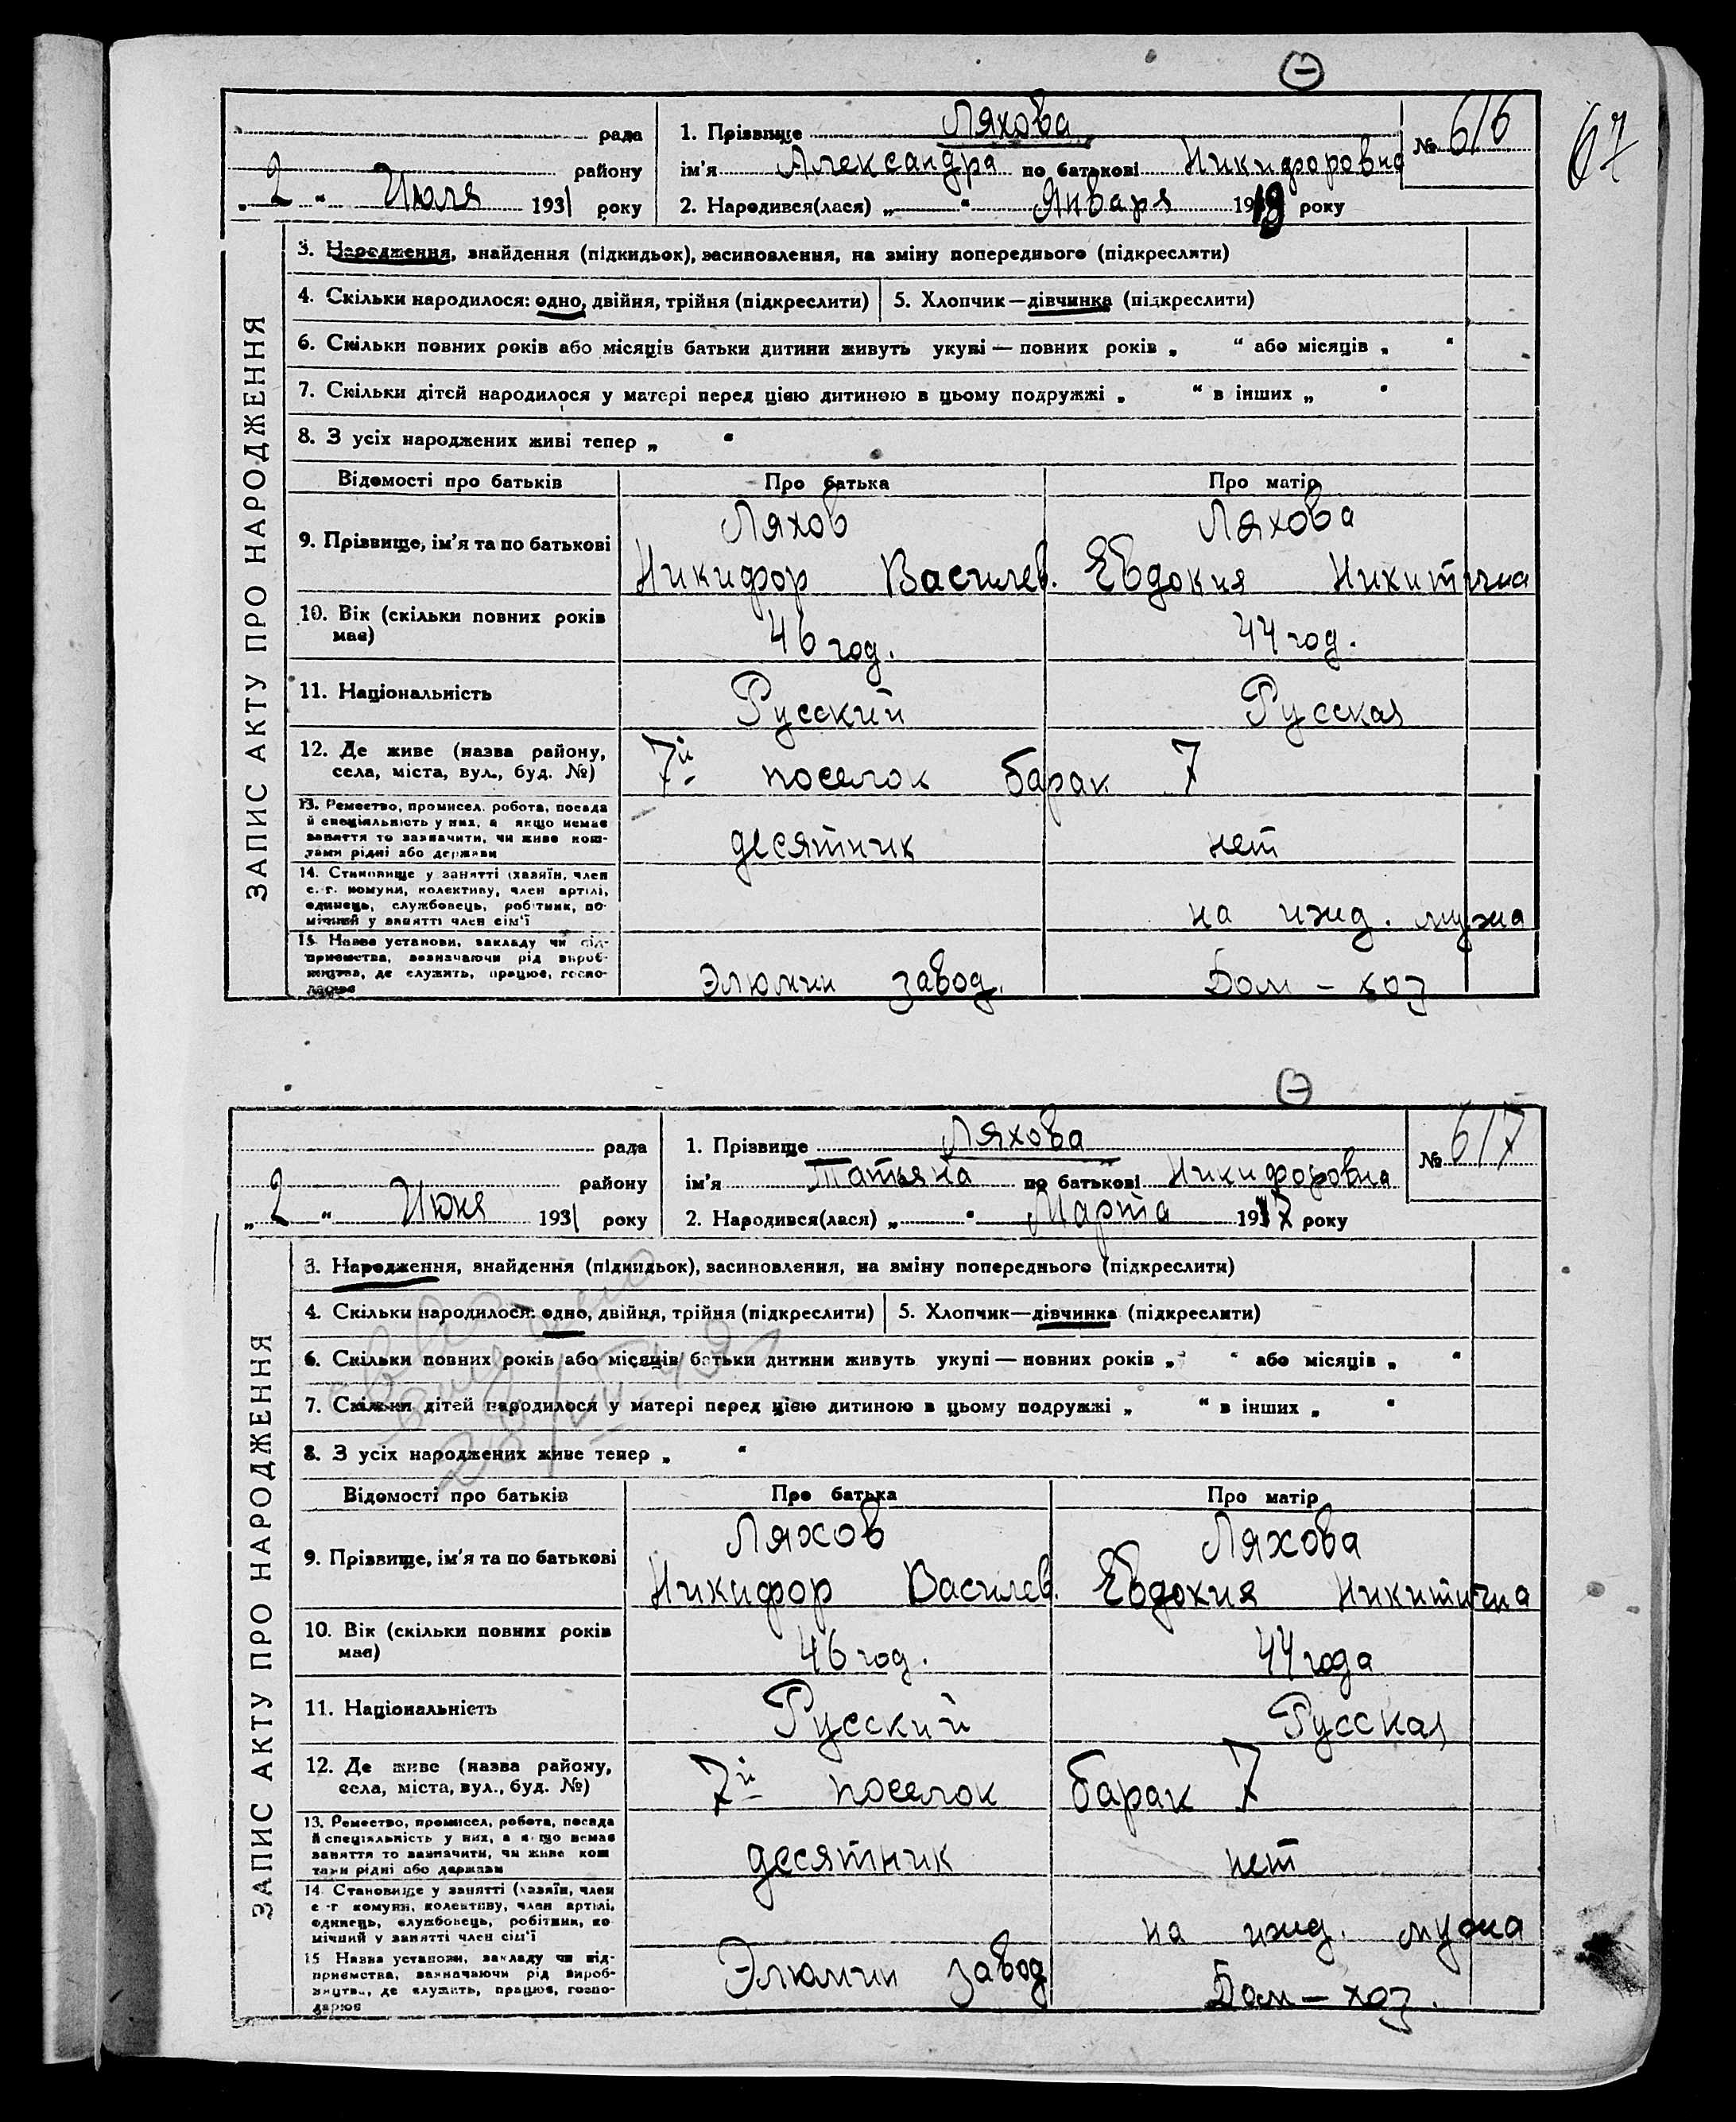 67
рада
району
„ 2 “ Июля 1931 року
1. Прізвище Ляхова
ім'я Александра по батькові Никифоровна
2. Народився(лася) „ “ Января 1919 року
№ 616
ЗАПИС АКТУ ПРО НАРОДЖЕННЯ
3. Народження, знайдення (підкидьок), засиновлення, на зміну попереднього (підкреслити)
4. Скільки народилося: одно, двійня, трійня (підкреслити) 5. Хлопчик—дівчинка (підкреслити)
6. Скільки повних років або місяців батьки дитини живуть укупі — повних років „ “ або місяців „ “
7. Скільки дітей народилося у матері перед цією дитиною в цьому подружжі „ “ в інших „ “
8. З усіх народжених живі тепер „ “
Відомості про батьків Про батька Про матір
9. Прізвище, ім'я та по батькові
Ляхов
Никифор Василев.
Ляхова
Евдокия Никитична
10. Вік (скільки повних років
має)
46 год.
44 год.
11. Національність Русский Русская
12. Де живе (назва району,
села, міста, вул., буд. №)
7й поселок барак 7
13. Ремество, промисел, робота, посада
й спеціяльність у них, а якщо немає
заняття то зазначити, чи живе кош-
тами рідні або держави
десятник
нет
14. Становище у занятті (хазяїн, член
с.-г. комуни, колективу, член артілі,
одинець, службовець, робітник, по-
мічний у занятті член сім'ї
на ижд. мужа
15. Назва установи, закладу чи під-
приємства, зазначаючи рід вироб-
ництва, де служить, працює, госпо-
дарює
Элюмин завод.
Дом – хоз
рада
району
„ 2 “ Июня 1931 року
1. Прізвище Ляхова
ім'я Татьяна по батькові Никифоровна
2. Народився(лася) „ “ Марта 1917 року
№ 617
ЗАПИС АКТУ ПРО НАРОДЖЕННЯ
3. Народження, знайдення (підкидьок), засиновлення, на зміну попереднього (підкреслити)
4. Скільки народилося: одно, двійня, трійня (підкреслити) 5. Хлопчик—дівчинка (підкреслити)
6. Скільки повних років або місяців батьки дитини живуть укупі — повних років „ “ або місяців „ “
7. Скільки дітей народилося у матері перед цією дитиною в цьому подружжі „ “ в інших „ “
8. З усіх народжених живе тепер „ “
Відомості про батьків Про батька Про матір
9. Прізвище, ім'я та по батькові
Ляхов
Никифор Василев.
Ляхова
Евдокия Никитична
10. Вік (скільки повних років
має)
46 год.
44 года
11. Національність Русский Русская
12. Де живе (назва району,
села, міста, вул., буд. №)
7й поселок барак 7
13. Ремество, промисел, робота, посада
й спеціяльність у них, а якщо немає
заняття то зазначити, чи живе кош
тами рідні або держави
десятник
нет
14. Становище у занятті (хазяїн, член
с.-г. комуни, колективу, член артілі,
одинець, службовець, робітник, по
мічний у занятті член сім'ї
на ижд. мужа
15 Назва установи, закладу чи під-
приємства, зазначаючи рід вироб-
ництва, де служить, працює, госпо-
дарює
Элюмин завод
Дом – хоз.